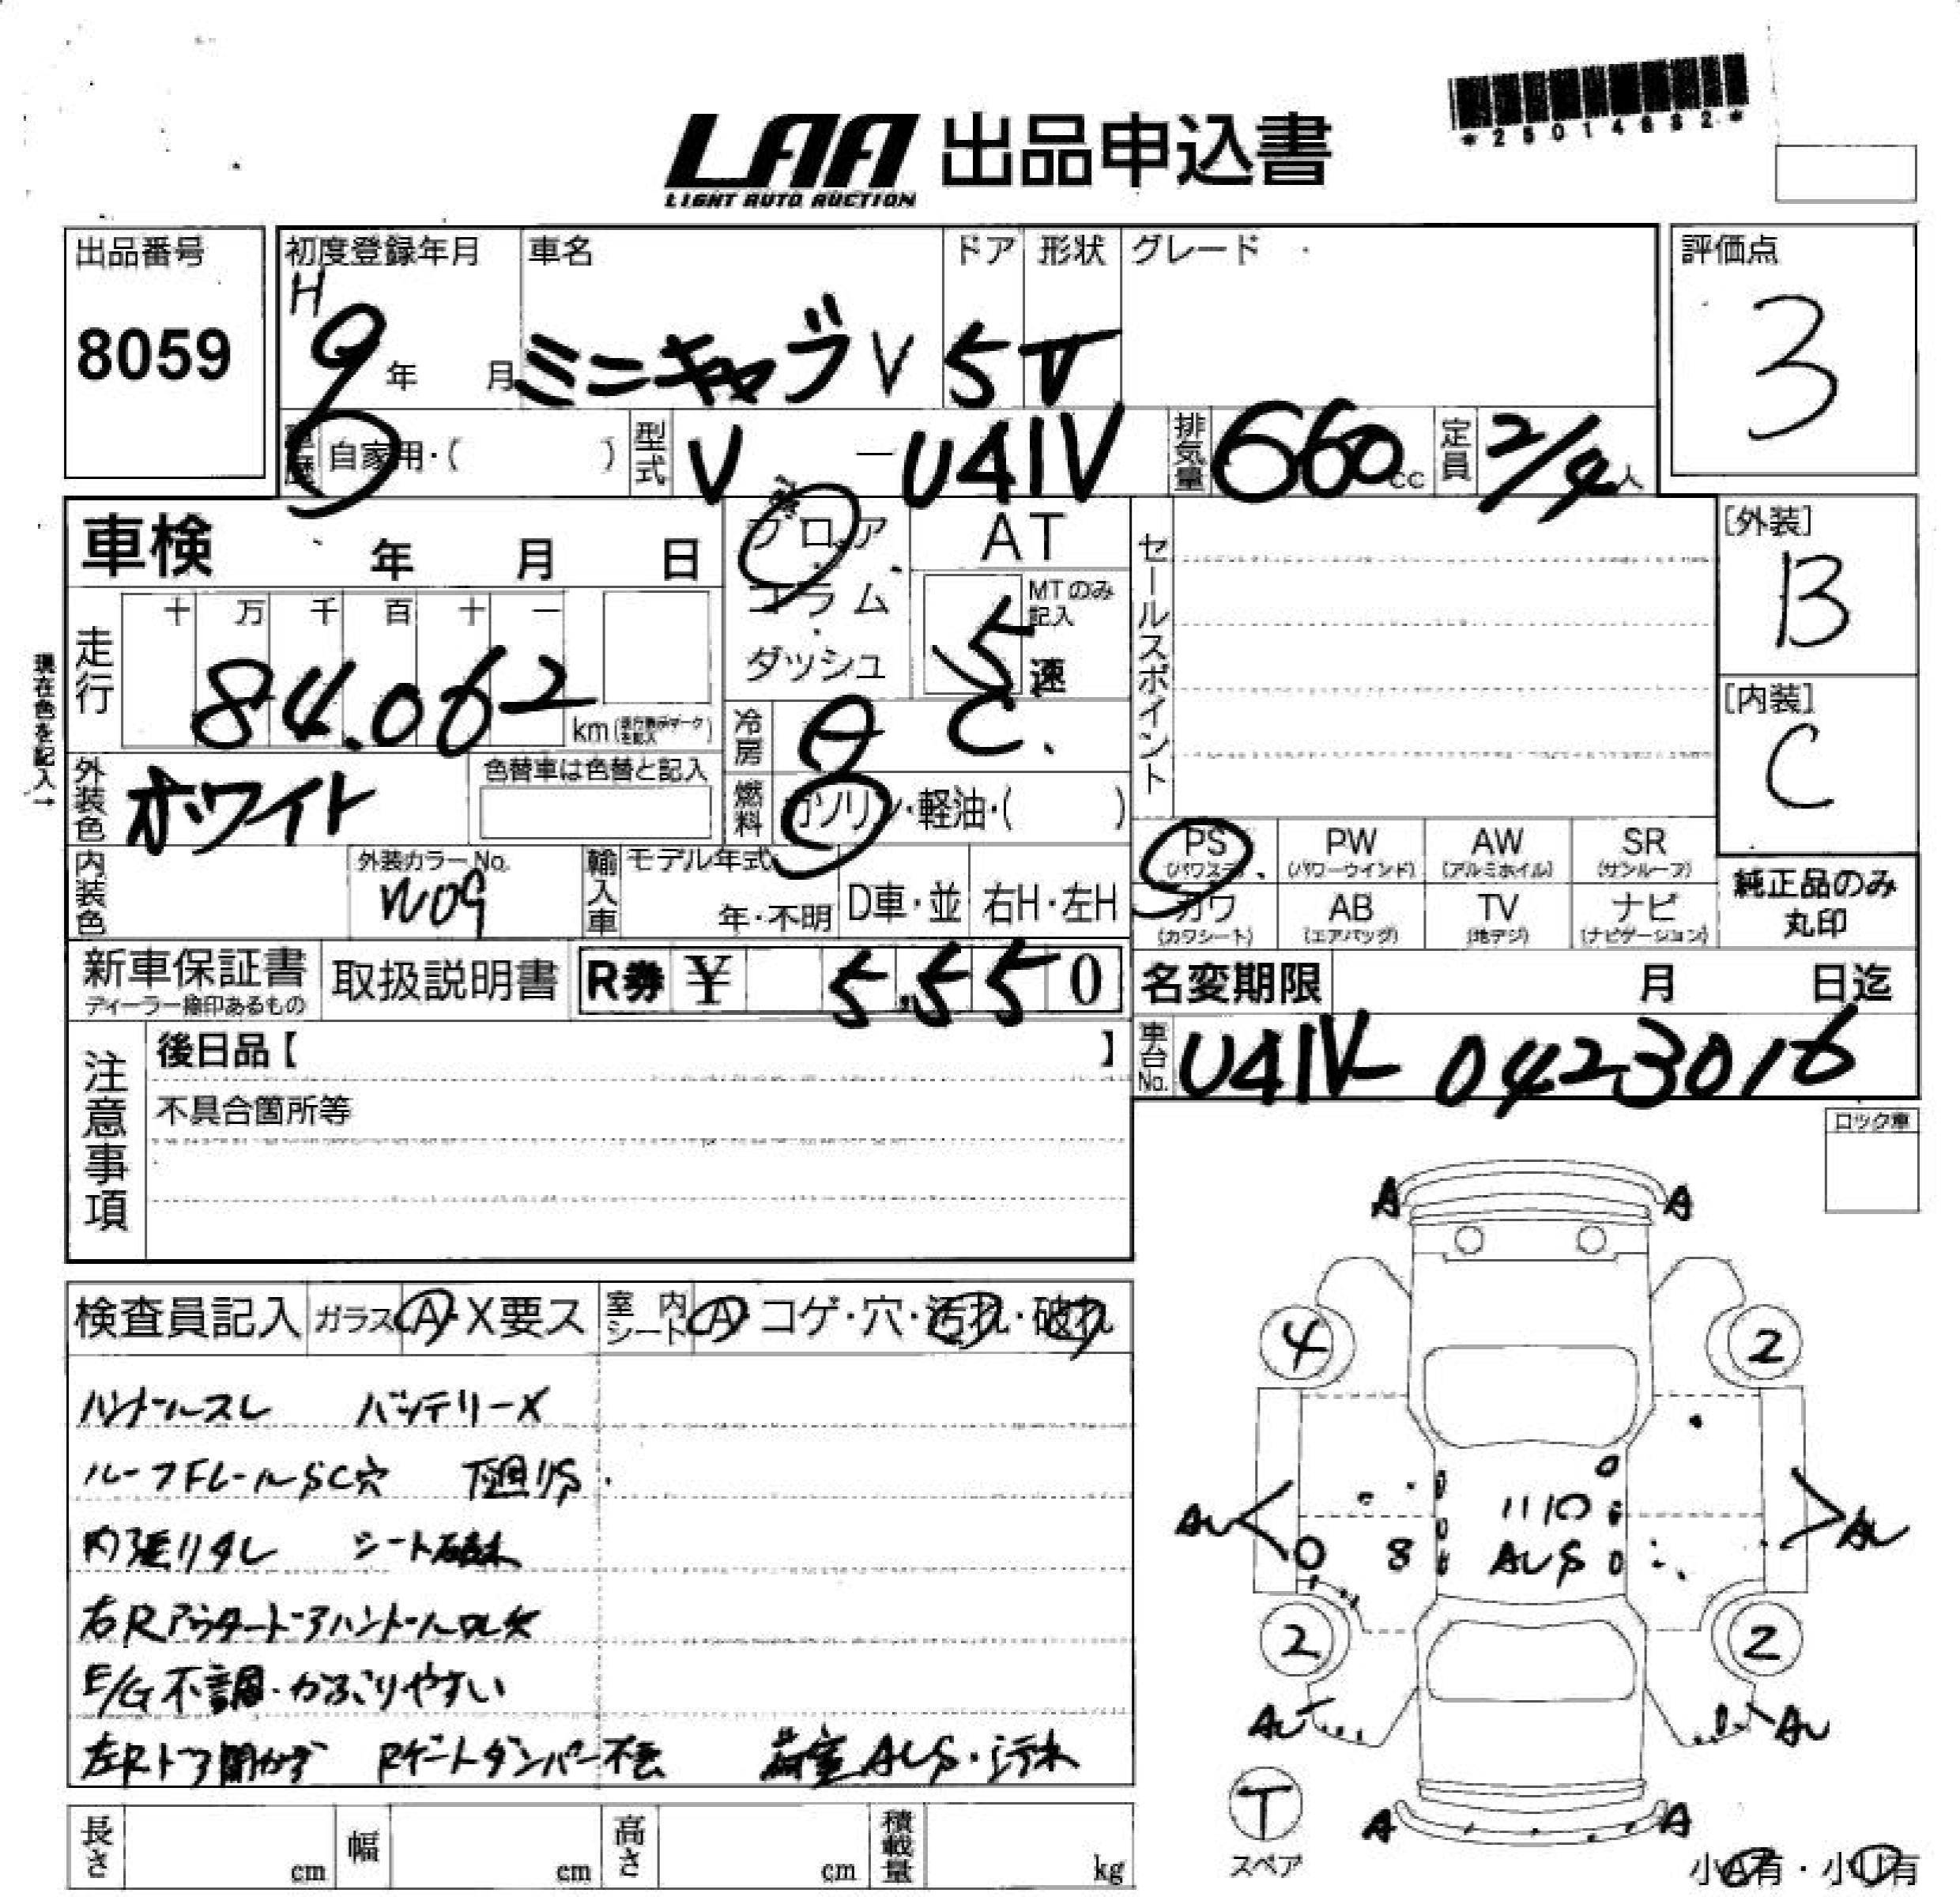 *25014892*
LAA 出品申込書
LIGHT AUTO AUCTION
出品番号 初度登録年月 車名 ドア 形状 グレード 評価点
8059 H 9 年 月 ミニキャブV 5 V 3
車歴 自家用・( ) 型式 V - U41V 排気量 660cc 定員 2/4人
車検 年 月 日 フロア AT セールスポイント [外装]
B
コラム MTのみ記入
ダッシュ 5速
現在色を記入→
走行 十 万 千 百 十 一
84.062 km
冷房 A C. [内装]
C
外装色 ホワイト 色替車は色替と記入 燃料 ガソリン・軽油・( )
PS PW AW SR
(パワステ) (パワーウインド) (アルミホイル) (サンルーフ)
純正品のみ
丸印
内装色 外装カラーNo. W09 輸入車 モデル年式 年・不明 D車・並 右H・左H
カワ AB TV ナビ
(カワシート) (エアバッグ) (地デジ) (ナビゲーション)
新車保証書 取扱説明書 R券 ¥ 5.550 名変期限 月 日迄
ディーラー捺印あるもの
注意事項 後日品【 】
車台No. U41V-0423016
不具合箇所等
ロック車
検査員記入 ガラス A・X要ス 室内シート A・コゲ・穴・汚れ・破れ
ハンドルスレ バッテリーX
ルーフFレールSC穴 下廻りS
内張りタレ シート破れ
右Rアウタードアハンドル
E/G不調・かぶりやすい
左Rドア開かず Rゲートダンパー不良 荷室AUS・汚れ
A A
4 2
AU 1110 AU
8 AUS
2 2
AU AU
T
スペア
A A
小A有・小U有
長さ cm 幅 cm 高さ cm 積載量 kg